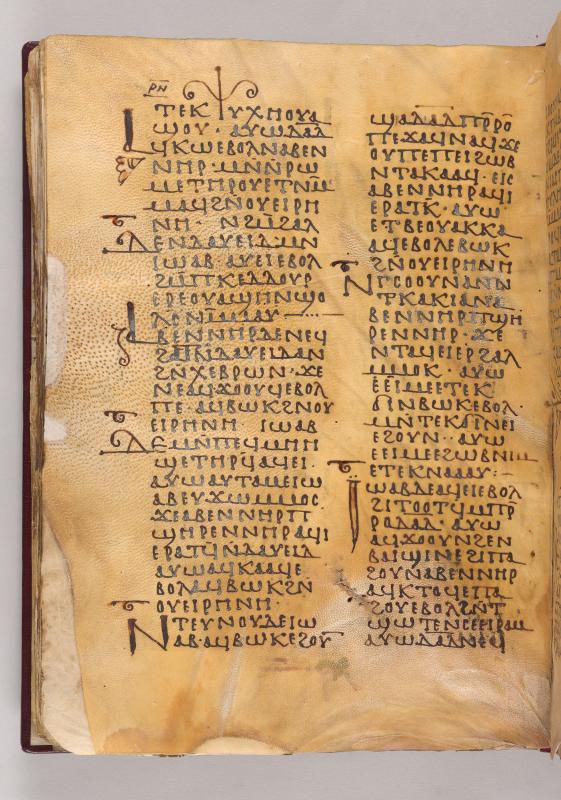 ⲣ̅ⲛ̅
ⲧⲉⲕⲯⲩⲭⲏⲟⲩⲁ
ϣⲟⲩ· ⲁⲩⲱⲇⲁ̅ⲇ̅
ⲁϥⲕⲱⲉⲃⲟⲗⲛⲁⲃⲉⲛ
ⲛⲏⲣ· ⲙⲛ̅ⲛ̅ⲣⲱ
ⲙⲉⲧⲏⲣⲟⲩⲉⲧⲛⲙ̅
ⲙⲁϥϩⲛ̅ⲟⲩⲉⲓⲣⲏ
ⲛⲏ· ⲛϩⲙ̅ϩⲁⲗ
ⲇⲉⲛⲇⲁⲩⲉⲓⲇ·ⲙⲛ
ⲓⲱⲁⲃ· ⲁⲩⲉⲓⲉⲃⲟⲗ
ϩⲙ̅ⲡⲕⲉⲇⲇⲟⲩⲣ
ⲉⲣⲉⲟⲩⲁϣⲏⲛϣⲟ
ⲗⲟⲛⲙ̅ⲙⲁⲩ·
ⲁⲃⲉⲛⲛⲏⲣⲇⲉⲛⲉϥ
ϩⲁⲧⲛ̅ⲇⲁⲩⲉⲓⲇⲁⲛ
ϩⲛⲭⲉⲃⲣⲱⲛ· ϫⲉ
ⲛⲉⲁϥϫⲟⲟⲩϥⲉⲃⲟⲗ
ⲡⲉ· ⲁϥⲃⲱⲕϩⲛⲟⲩ
ⲉⲓⲣⲏⲛⲏ ⲓⲱⲁⲃ
ⲇⲉⲙⲛ̅ⲡⲉϥⲙⲏⲏ
ϣⲉⲧⲏⲣϥ̅ⲁϥⲉⲓ·
ⲁⲩⲱⲁⲩⲧⲁⲙⲉⲓⲱ
ⲁⲃⲉⲩϫⲱⲙⲙⲟⲥ
ϫⲉⲁⲃⲉⲛⲛⲏⲣⲡ
ϣⲏⲣⲉⲛⲛⲏⲣⲁϥⲉⲓ
ⲉⲣⲁⲧϥⲛ̅ⲇⲁⲩⲉⲓⲇ
ⲁⲩⲱⲁϥⲕⲁⲁϥⲉ
ⲃⲟⲗⲁϥⲃⲱⲕϩⲛ̅
ⲟⲩⲉⲓⲣⲏⲛⲏ·
ⲛⲧⲉⲩⲛⲟⲩⲇⲉⲓⲱ
ⲁⲃ·ⲁϥⲃⲱⲕⲉϩⲟⲩ̅
ϣⲁⲇⲁⲇⲡⲣ̅ⲣⲟ̅
ⲡⲉϫⲁϥⲛⲁϥϫⲉ
ⲟⲩⲡⲉⲡⲉⲓϩⲱⲃ
ⲛⲧⲁⲕⲁⲁϥ· ⲉⲓⲥ
ⲁⲃⲉⲛⲛⲏⲣⲁϥⲓ
ⲉⲣⲁⲧⲕ̅· ⲁⲩⲱ
ⲉⲧⲃⲉⲟⲩⲁⲕⲕⲁ
ⲁϥⲉⲃⲟⲗⲉⲃⲱⲕ
ϩⲛ̅ⲟⲩⲉⲓⲣⲏⲛⲏ
ⲛⲅⲥⲟⲟⲩⲛⲁⲛⲛ
ⲧⲕⲁⲕⲓⲁⲛⲁ
ⲃⲉⲛⲛⲏⲣⲡϣⲏ
ⲣⲉⲛⲛⲏⲣ· ϫⲉ
ⲛⲧⲁϥⲉⲓⲉⲣϩⲁⲗ
ⲙⲙⲟⲕ· ⲁⲩⲱ
ⲉⲉⲓⲙⲉⲉⲧⲉⲕ
ϭⲓⲛⲃⲱⲕⲉⲃⲟⲗ·
ⲙⲛ̅ⲧⲉⲕϭⲓⲛⲉⲓ
ⲉϩⲟⲩⲛ· ⲁⲩⲱ
ⲉⲉⲓⲙⲉⲉϩⲱⲃⲛⲓⲙ
ⲉⲧⲉⲕⲛⲁⲁⲁⲩ:
ⲓⲱⲁⲃⲇⲉⲁϥⲉⲓⲉⲃⲟⲗ
ϩⲓⲧⲟⲟⲧϥⲙⲡⲣ̅
ⲣⲟⲇⲁⲇ· ⲁⲩⲱ
ⲁϥϫⲟⲟⲩⲛϩⲉⲛ
ⲃⲁⲓϣⲓⲛⲉϩⲓⲡⲁ
ϩⲟⲩⲛⲁⲃⲉⲛⲛⲏⲣ
ⲁϥⲕⲧⲟϥⲉⲡⲁ
ϩⲟⲩⲉⲃⲟⲗϩⲛ̅ⲧ
ϣⲱⲧⲉⲛⲥⲉⲉⲓⲣⲁⲙ
ⲁⲩⲱⲇⲁⲇⲛⲉϥ